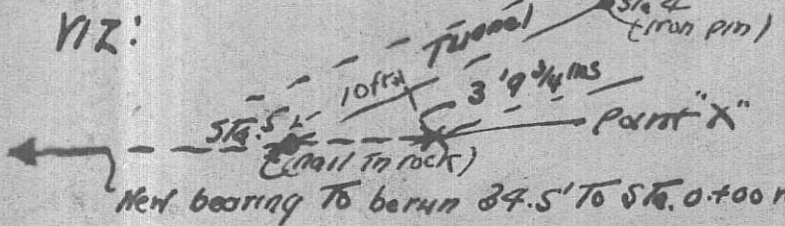 VIZ:
Sta 4
(Iron pin)
Tunnel
10 ft
3' 9 3/4 ins
Sta. 5
Point "X"
(nail in rock)
New bearing To be run 34.5' To Sta. 0+00